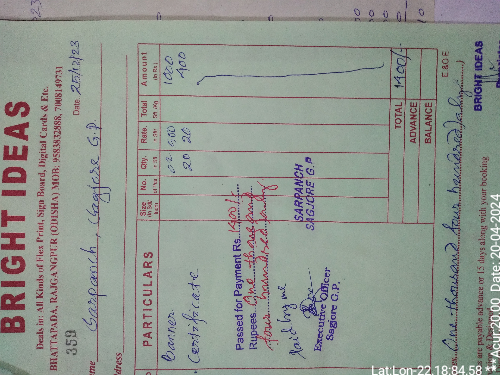 BRIGHT IDEAS
Deals in: All Kinds of Flex Print, Sign Board, Digital Cards & Etc.
BHATTAPADA, RAJGANGPUR (ODISHA) MOB: 9583832888, 7008149731
359 Date 25/12/23
ame Sarpanch, Sagjore G.P
ddress
PARTICULARS Size No. Qty. Rate. Total Amount
Banner 02 500 1000
Certificate 20 20 400
Passed for Payment Rs. 1400/-
Rupees One thousand
four hundred only
Paid by me
Executive Officer
Sagjore G.P.
SARPANCH
SAGJORE G.P
TOTAL 1400/-
ADVANCE
BALANCE
One thousand four hundred only E.&O.E
are payable advance or 15 days along with your booking
BRIGHT IDEAS
Lat:Lon-22.18:84.58
Date: 20-04-2024